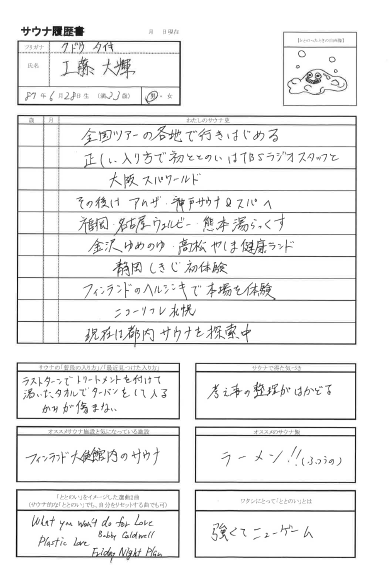 サウナ履歴書
月 日現在
フリガナ クドウ タイキ
氏名 工藤 大輝
87年6月28日生（満33歳） 男・女
歳 月 わたしのサウナ史
全国ツアーの各地で行きはじめる
正しい入り方で初ととのいはTBSラジオスタッフと
大阪スパワールド
その後は アムザ・神戸サウナ&スパへ
福岡・名古屋ウェルビー・熊本湯らっくす
金沢ゆめのゆ・高松やしま健康ランド
静岡しきじ初体験
フィンランドのヘルシンキで本場を体験
ニコーリフレ札幌
現在は都内サウナを探索中
サウナの「普段の入り方」「最近見つけた入り方」
ラストターンでトリートメントを付けて
濡いたタオルでターバンをして入る
かみが傷まない
サウナで得た気づき
考え事の整理がはかどる
オススメサウナ施設と気になっている施設
フィンランド大使館内のサウナ
オススメのサウナ飯
ラーメン!!(ふつうの)
「ととのい」をイメージした選曲2曲
(サウナ作りな「ととのい」でも、自分をリセットする曲でも可)
What you won't do for Love
Bobby Caldwell
Plastic Love
Friday Night Plan
ワタシにとって「ととのい」とは
強くてニューゲーム